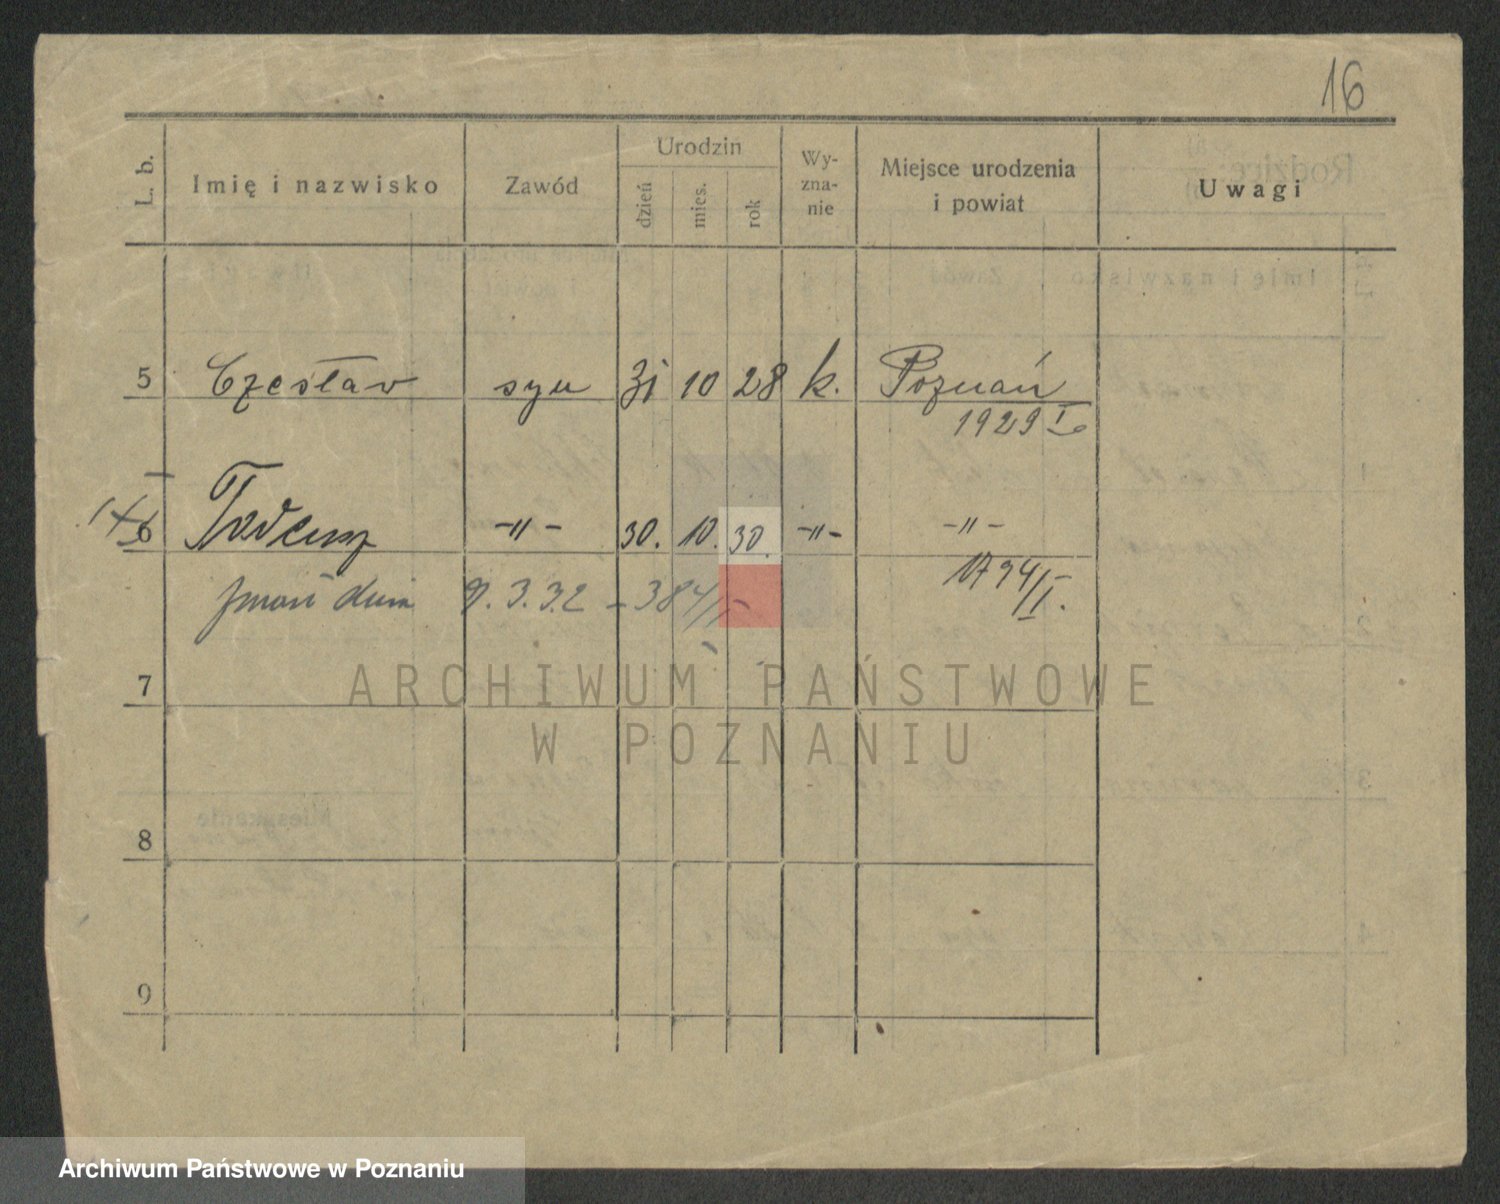 16
L. b. Imię i nazwisko Zawód Urodzin dzień mies. rok Wy-zna-nie Miejsce urodzenia i powiat Uwagi
5 Czesław syn 31 10 28 k. Poznań
1929 I
6 Tadeusz -"- 30. 10. 30. -"- -"-
1794/I.
zmarł dnia 9.3.32 - 384/II
7
ARCHIWUM PAŃSTWOWE
W POZNANIU
8
9
Archiwum Państwowe w Poznaniu